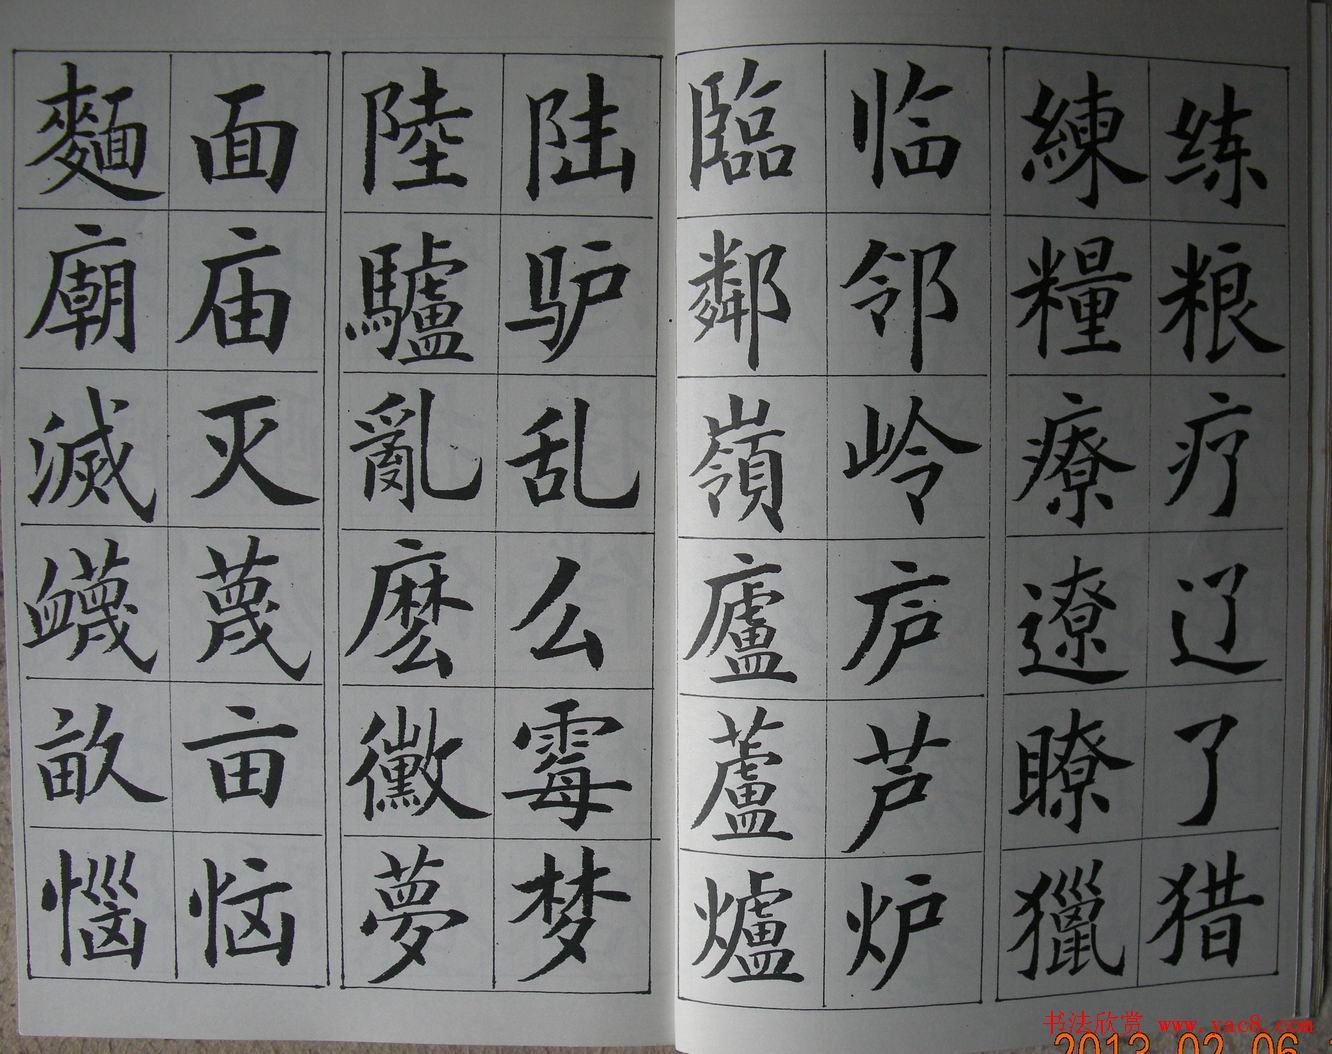 练粮疗辽了猎
練糧療遼瞭獵
临邻岭庐芦炉
臨鄰嶺廬蘆爐
陆驴乱么霉梦
陸驢亂麽黴夢
面庙灭蔑亩恼
麵廟滅衊畝惱
书法欣赏 www.yac8.com
2013.02.06